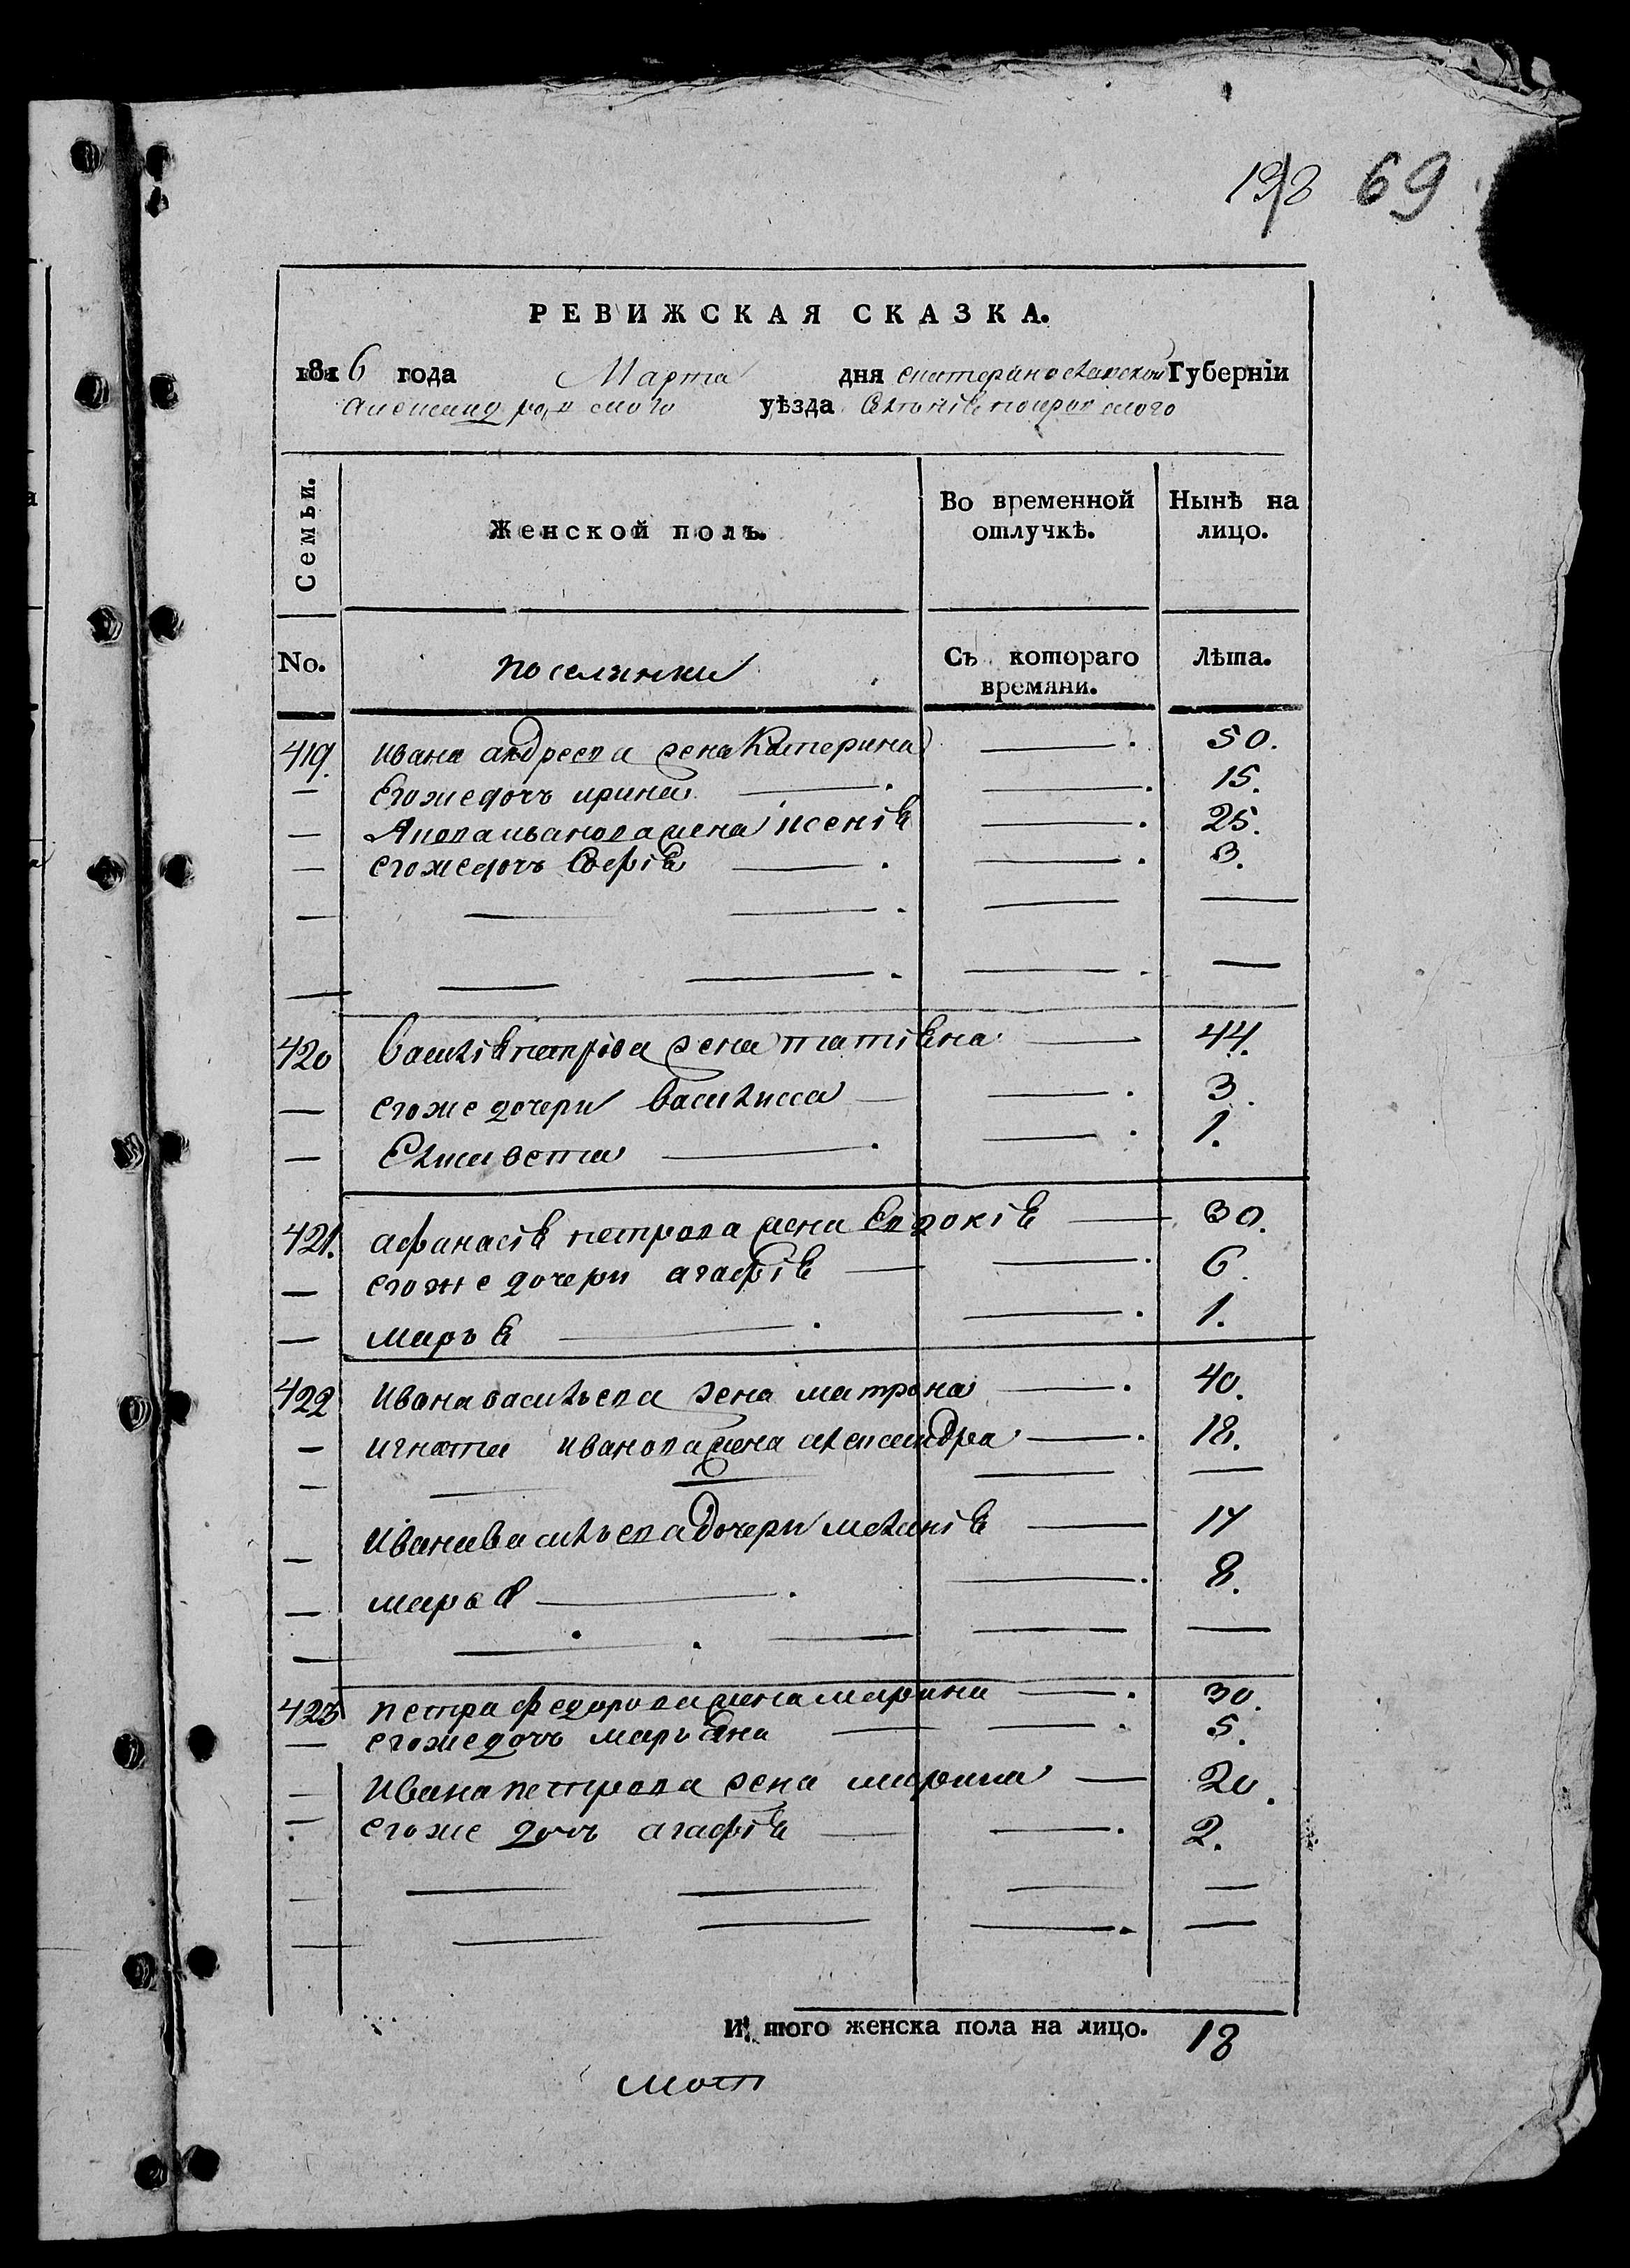 69
РЕВИЖСКАЯ СКАЗКА.
1816 года Марта дня екатеринославской Губерніи
александровского уѣзда селенія покровского
Семьи. Женской полъ. Во временной отлучкѣ. Нынѣ на лицо.
No. поселянки Съ котораго времяни. Лѣта.
419. ивана андреева жена Катерина — 50.
— егожедочь ирина — 15.
— Якова иванова жена ксенія — 25.
— егожедочь софія — 3.
420 василія петрова жена татіяна — 44.
— егоже дочери василисса — 3.
— Елисавета — 1.
421. афанасія петрова жена Евдокія — 30.
— егоже дочери агафія — 6.
— марья — 1.
422 ивана васильева жена матрона — 40.
— игната иванова жена александра — 18.
— ивана васильева дочери меланія — 14
— марья — 8.
423 петра федорова жена марина — 30.
— егожедочь марьяна — 5.
— ивана петрова жена марина — 20.
— егоже дочь агафія — 2.
И того женска пола на лицо. 18